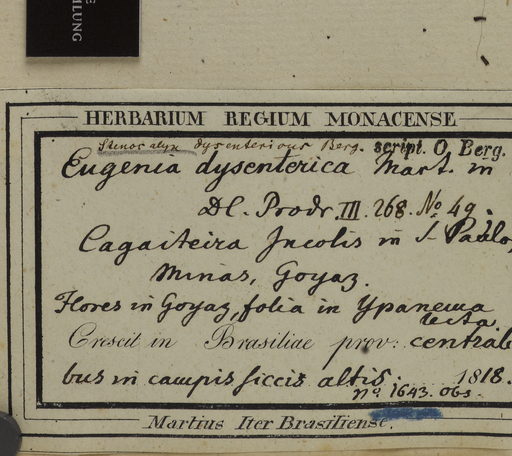 ILUNG
HERBARIUM REGIUM MONACENSE
Stenocalyx dysentericus Berg. script. O. Berg.
Eugenia dysenterica Mart. in
DC. Prodr. III. 268. No 49.
Cagaiteira Incolis in S. Paulo,
Minas, Goyaz.
Flores in Goyaz, folia in Ypanema
lecta.
Crescit in Brasiliae prov: central
bus in campis siccis altis. 1818.
no. 1643. obs.
Martius Iter Brasiliense.